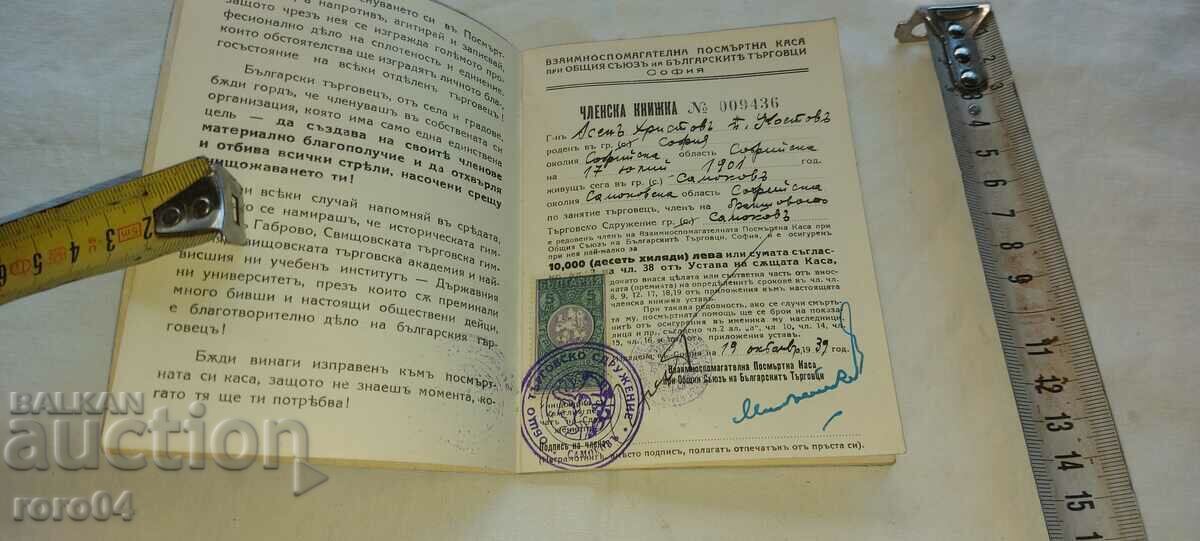 членуването си въ Посмърт.
а напротивъ, агитирай и записвай,
защото чрезъ нея се изгражда голѣмото про-
фесионално дѣло на сплотеность и единение,
които обстоятелства ще изградятъ личното бла-
госъстояние на всѣки отдѣленъ търговецъ!
Български търговецъ, отъ села и градове,
бѫди гордъ, че членувашъ въ собствената си
организация, която има само една единствена
цель — да създава на своитѣ членове
материално благополучие и да отхвърля
и отбива всички стрѣли, насочени срещу
унищожаването ти!
При всѣки случай напомняй въ срѣдата,
се намирашъ, че историческата гим-
Габрово, Свищовската търговска гим-
Свищовската търговска академия и най-
висшия ни учебенъ институтъ — Държавния
ни университетъ, презъ които сѫ преминали
много бивши и настоящи обществени дейци,
е благотворително дѣло на българския тър-
говецъ!
Бѫди винаги изправенъ къмъ посмърт-
ната си каса, защото не знаешъ момента, ко-
гато тя ще ти потрѣбва!
ВЗАИМНОСПОМАГАТЕЛНА ПОСМЪРТНА КАСА
ПРИ ОБЩИЯ СЪЮЗЪ НА БЪЛГАРСКИТѢ ТЪРГОВЦИ
СОФИЯ
ЧЛЕНСКА КНИЖКА № 009436
Г-нъ Асенъ Христовъ п. Костовъ
роденъ въ гр. (с.) София
околия Софийска область Софийска
на 17 юлий 1901 год.
живущъ сега въ гр. (с.) Самоковъ
околия Самоковска область Софийска
по занятие търговецъ, членъ на
Търговско Сдружение гр. (с.) Самоковъ
е редовенъ членъ на Взаимноспомагателната Посмъртна Каса при
Общия Съюзъ на Българскитѣ Търговци, София, и е осигуренъ
при нея най-малко за
10,000 (десеть хиляди) лева или сумата съглас-
на чл. 38 отъ Устава на сѫщата Каса,
докато внася цѣлата или съответна часть отъ внос-
ката (премията) на опредѣленитѣ срокове въ чл. чл.
8, 9, 12, 17, 18, 19 отъ приложения къмъ настоящата
членска книжка уставъ.
При такава редовность, ако се случи смърть-
та му, посмъртната помощь ще се брои на показа-
нитѣ отъ осигурения въ именика му наследници
лица и пр., съгласно чл. 2 ал. „а“ чл. 10, чл. 14, чл.
15, чл. 16 и отъ приложения уставъ.
София на 19 октомвр. 1939 год.
Взаимноспомагателна Посмъртна Каса
при Общия Съюзъ на Българскитѣ Търговци
БЪЛГАРИЯ
5 5
ОБЩО ТЪРГОВСКО СДРУЖЕНИЕ
САМОКОВЪ
Подпись на члена
(Неграмотнитѣ, вмѣсто подпись, полагатъ отпечатъкъ отъ пръста си).
2 3 4 5 6
2 3 4 5 6 7 8 9 10 11 12 13 14 15
BALKAN
auction
roro04